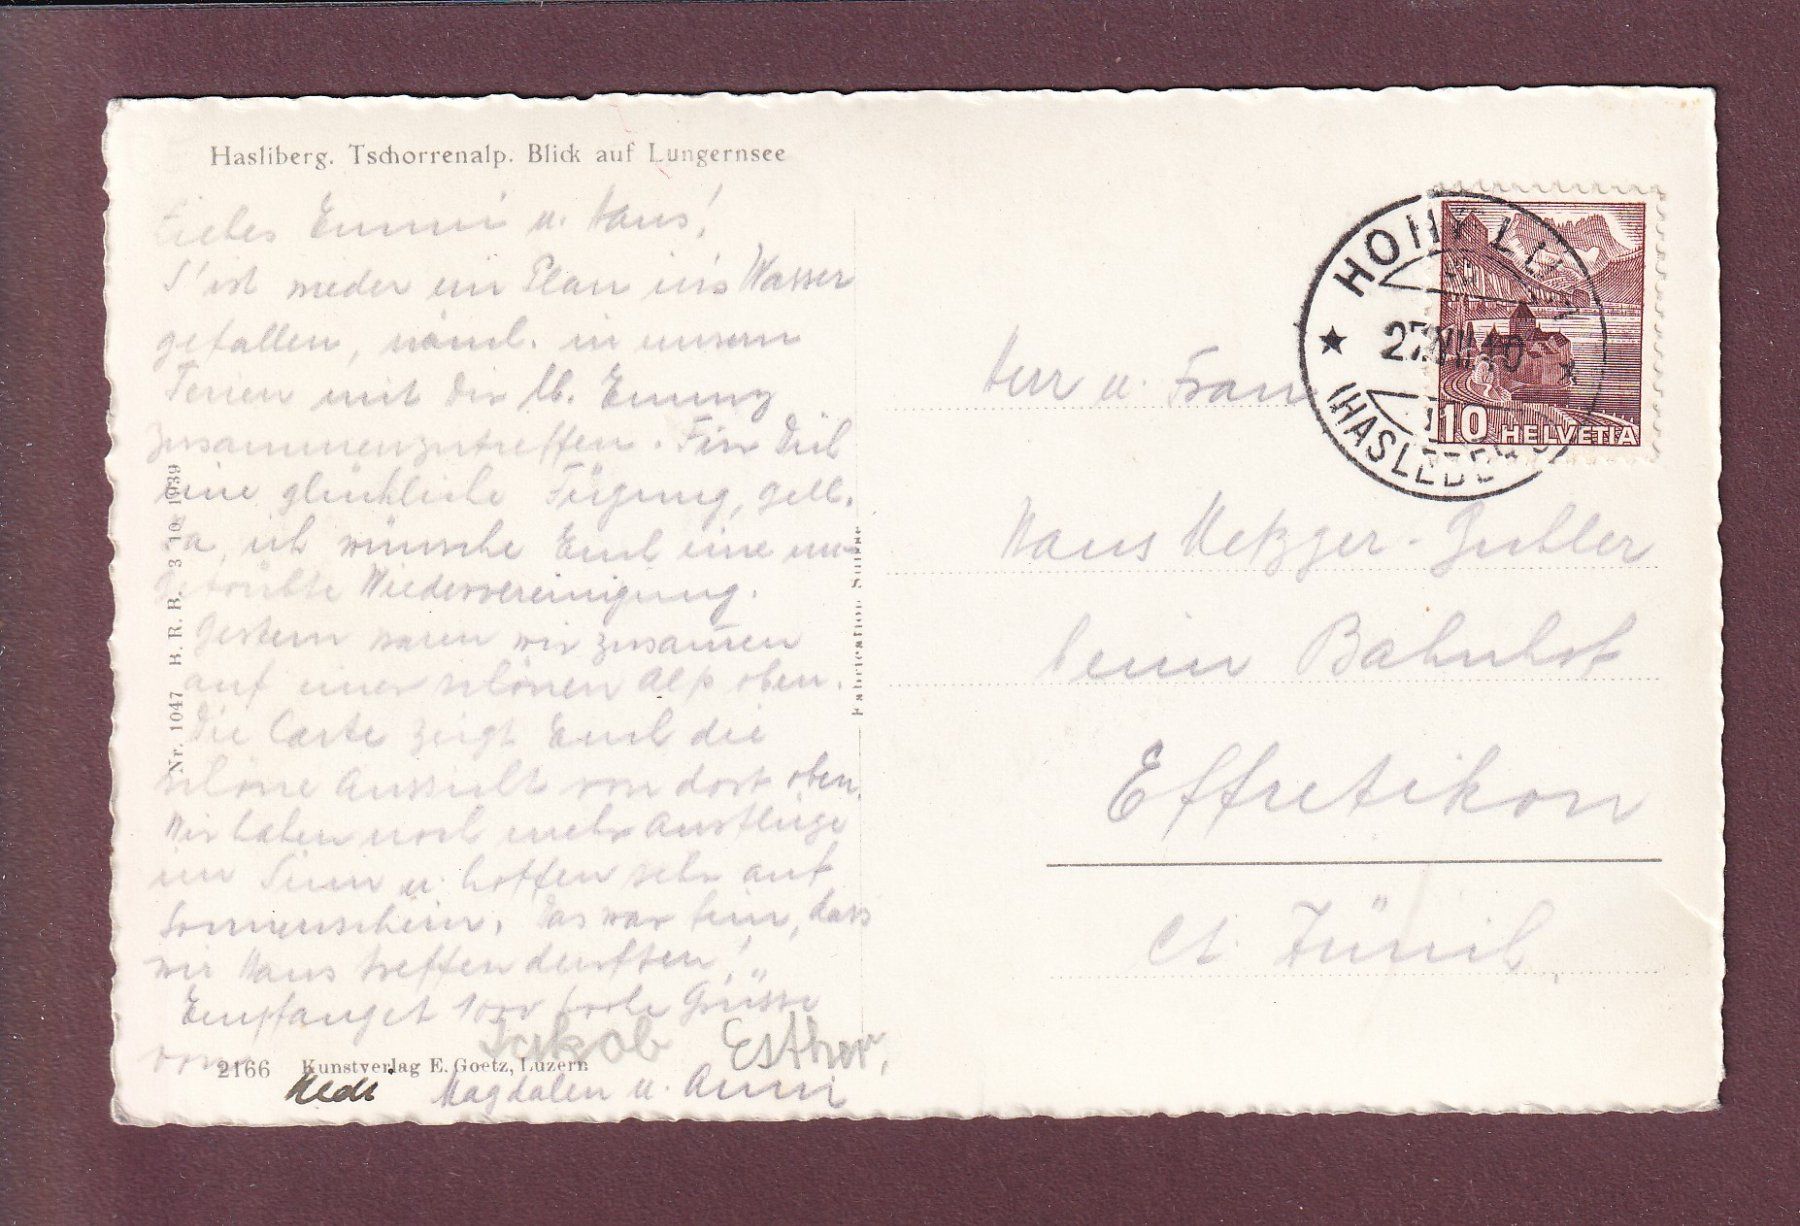 Hasliberg. Tschorrenalp. Blick auf Lungernsee
Liebes Emmi u. Hans!
S'ist wieder ein Plan ins Wasser
gefallen, näml. in unsern
Ferien mit Dir lb. Emmy
zusammenzutreffen. Für Dich
eine glückliche Fügung, gell.
Ja, ich wünsche Euch eine un-
getrübte Wiedervereinigung.
Gestern waren wir zusamen
auf einer schönen Alp oben.
Die Carte zeigt Euch die
schöne Aussicht von dort oben.
Wir haben noch mehr Ausflüge
im Sinn u. hoffen sehr auf
Sonnenschein. Das war fein, dass
wir Hans treffen durften!
Empfanget 1000 frohe Grüsse
von
Jakob Esther,
Hedi Magdalen u. Anni
2166 Kunstverlag E. Goetz, Luzern
Nr. 1047 B. R. B. 3 10 1939
Fabrication Suisse
HOHFLUH
27.VII.40
(HASLEBERG)
10 HELVETIA
Herr u. Frau
Hans Metzger-Gubler
beim Bahnhof
Effretikon
Ct. Zürich.